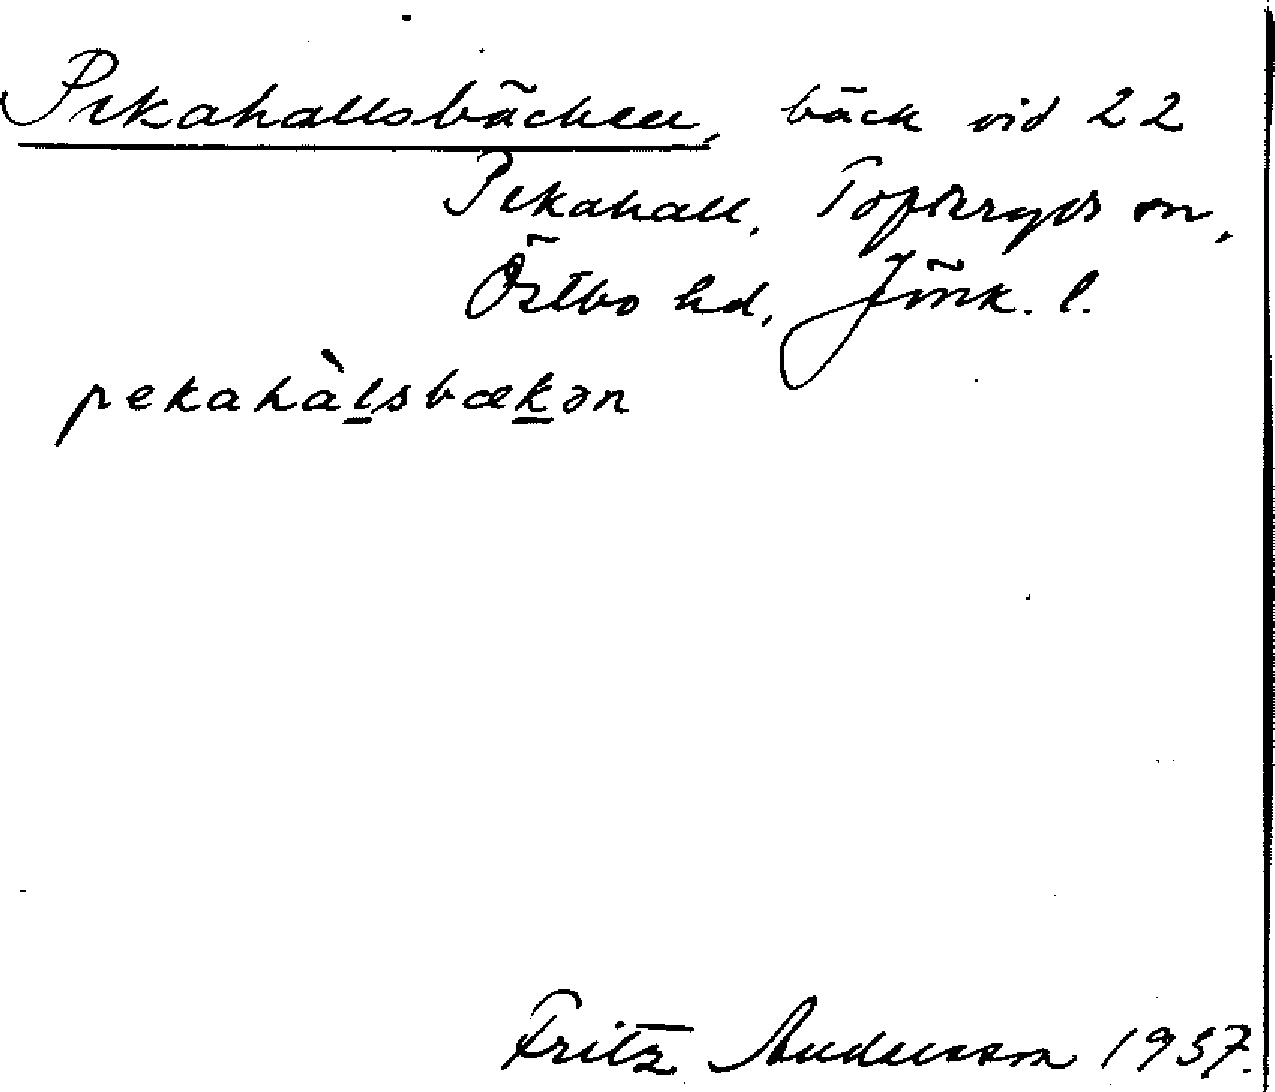 Pekahallsbäcken, bäck vid 22
Pekahall, Tofteryds sn,
Östbo hd, Jönk. l.
pekahàlsbækən
Fritz Andersson 1937.